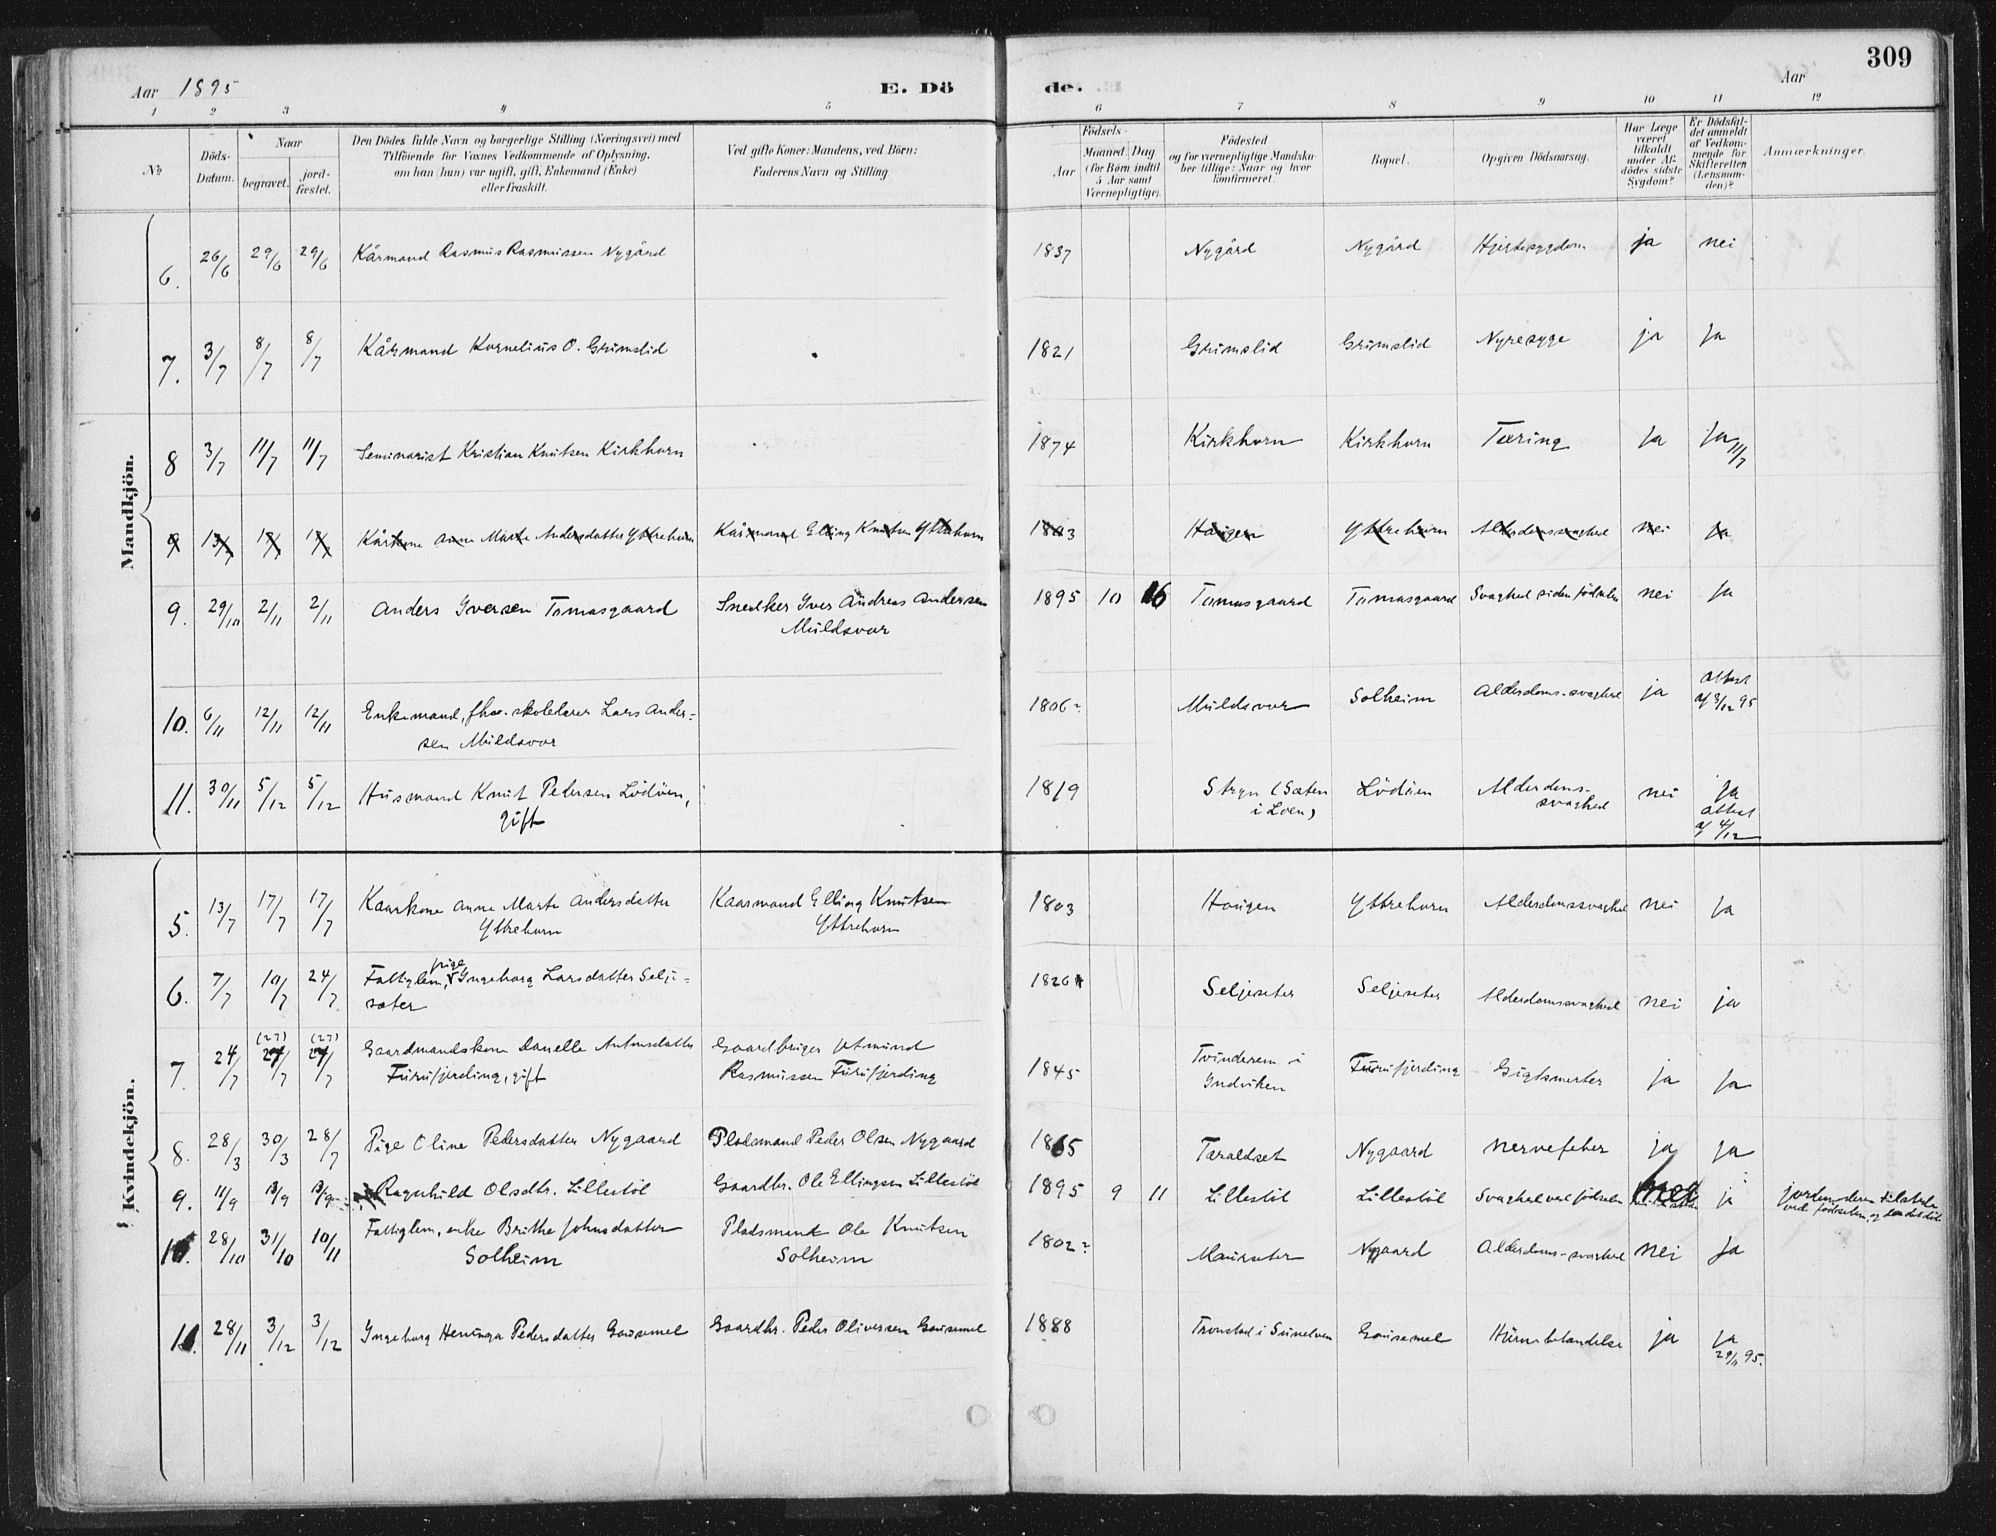 309
Aar 1895 E. Dö de. Aar
1 2 3 4 5 6 7 8 9 10 11 12
No
Döds-Datum.
Naar
begravet.
jord-fæstet.
Den Dödes fulde Navn og borgerlige Stilling (Næringsvei) med
Tilföiende for Voxnes Vedkommende af Oplysning,
om han (hun) var ugift, gift, Enkemand (Enke)
eller fraskilt.
Ved gifte Koner: Mandens, ved Börn:
Faderens Navn og Stilling.
Födsels-
Aar
Maaned. Dag
(for Börn indtil
5 Aar samt
Værnepligtige).
Födested
og for værnepligtige Mandska-
ber tillige: Naar og hvor
konfirmeret.
Bopæl.
Opgiven Dödsaarsag.
Har Læge
været
tilkaldt
under Af-
dödes sidste
Sygdom?
Er Dödsfal-
det anmeldt
af Vedkom-
mende for
Skifteretten
(Lensman-
den)?
Anmærkninger.
Mandkjön.
6. 26/6 29/6 29/6 Kårmand Rasmus Rasmussen Nygård 1837 Nygård Nygård Hjertesygdom ja nei
7. 3/7 8/7 8/7 Kårmand Kornelius O. Grimslid 1821 Grimslid Grimslid Nyresyge ja ja
8 3/7 11/7 11/7 Seminarist Kristian Knutsen Kirkhorn 1874 Kirkhorn Kirkhorn Tæring ja ja 11/7
9 13/7 Kårkone Anne Marte Andersdatter Yttrehorn Kårmand Elling Knutsen Yttrehorn 1803 Haugen Yttrehorn Alderdomssvaghed nei ja
9. 29/10 2/11 2/11 Anders Iversen Tomasgaard Snedker Iver Andreas Andersen 1895 10 16 Tomasgaard Tomasgaard Svaghed siden födselen nei ja
Muldsvor
10. 6/11 12/11 12/11 Enkemand, fhv. skolelærer Lars Ander- 1806? Muldsvor Solheim Alderdoms-svaghed ja attest
sen Muldsvor af 3/12 95
11. 30/11 5/12 5/12 Husmand Knut Pedersen Lödöen, 1819 Stryn (Sæten Lödöen Alderdoms- nei ja
gift i Loen) svaghed attest
af 4/12
Kvindekjön.
5. 13/7 17/7 17/7 Kaarkone Anne Marte Andersdatter Kaarmand Elling Knutsen 1803 Haugen Yttrehorn Alderdomssvaghed nei ja
Yttrehorn Yttrehorn
pige
6. 7/7 10/7 24/7 Fattiglem, Ingeborg Larsdatter Selje- 1826 Seljeseter Seljeseter Alderdomssvaghed nei ja
sæter
(27) (27)
7. 24/7 Gaardmandskone Danelle Antonsdatter Gaardbruger Jetmund 1845 Tvinderem i Furufjerding Gigtsmerter ja ja
Furufjerding, gift Rasmussen Furufjerding Indviken
8. 28/3 30/3 28/7 Pige Oline Pedersdatter Nygaard Pladsmand Peder Olsen Nygaard 1865 Taraldset Nygaard Nervefeber ja ja
9. 11/9 13/9 13/9 Ragnhild Olsdtr. Lillestöl Gaardbr. Ole Ellingsen Lillestöl 1895 9 11 Lillestöl Lillestöl Svaghed ved födselen nei ja jordmoderen tilstede
ved födselen, og
10. 28/10 31/10 10/11 Fattiglem, enke Brithe Johnsdatter Pladsmand Ole Knutsen 1802? Maurseter Nygaard Alderdoms-svaghed nei ja
Solheim Solheim
11. 28/11 3/12 3/12 Ingeborg Heninga Pedersdatter Gausemel Gaardbr. Peder Oliversen Gausemel 1888 Tronstad i Sunelven Gausemel Hjernebetændelse ja ja
29/11 95.